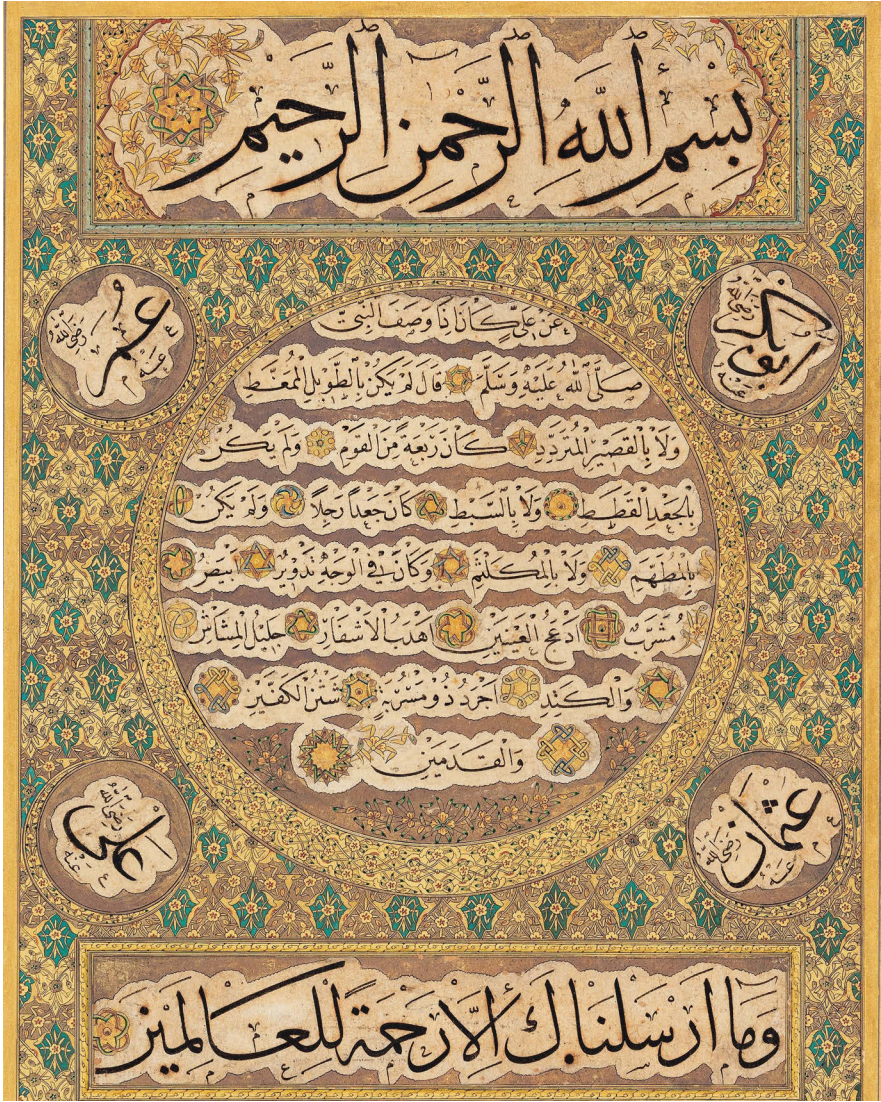 بسم الله الرحمن الرحيم
ابو بكر رضي الله عنه
عمر رضي الله عنه
عن علي كان اذا وصف النبي
صلى الله عليه وسلم قال لم يكن بالطويل الممغط
ولا بالقصير المتردد كان ربعة من القوم ولم يكن
بالجعد القطط ولا بالسبط كان جعدا رجلا ولم يكن
بالمطهم ولا بالمكلثم وكان في الوجه تدوير ابيض
مشرب ادعج العينين اهدب الاشفار جليل المشاش
والكتد اجرد ذو مسربة شثن الكفين
والقدمين
عثمان رضي الله عنه
علي رضي الله عنه
وما ارسلناك الا رحمة للعالمين